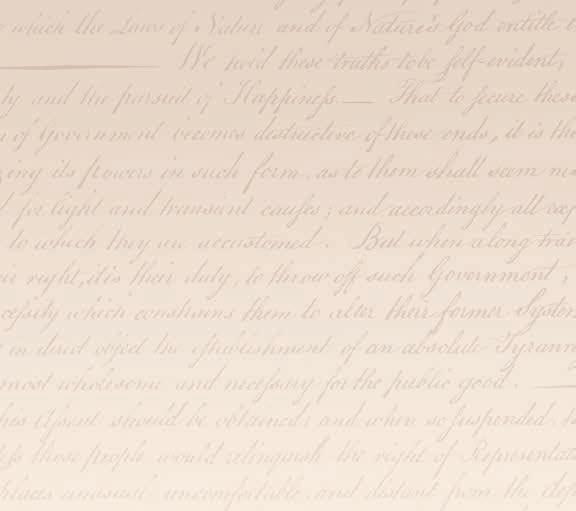 which the Laws of Nature and of Nature's God entitle
We hold these truths to be self-evident,
ty and the pursuit of Happiness.— That to secure these
of Government becomes destructive of these ends, it is the
zing its powers in such form, as to them shall seem
for light and transient causes; and accordingly all exp
to which they are accustomed. But when a long train
eir right, it is their duty, to throw off such Government,
cessity which constrains them to alter their former System
in direct object the establishment of an absolute Tyranny
most wholesome and necessary for the public good.
his Assent should be obtained; and when so suspended,
less those people would relinquish the right of Representat
places unusual uncomfortable, and distant from the depo